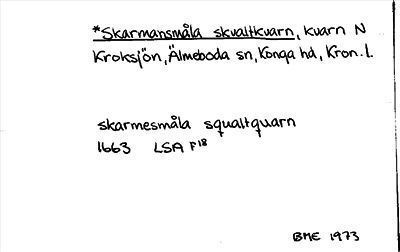 *Skarmansmåla skvaltkvarn, kvarn N
Kroksjön, Älmeboda sn, Konga hd, Kron. l.
skarmesmåla squaltquarn
1663 LSA F18
BME 1973